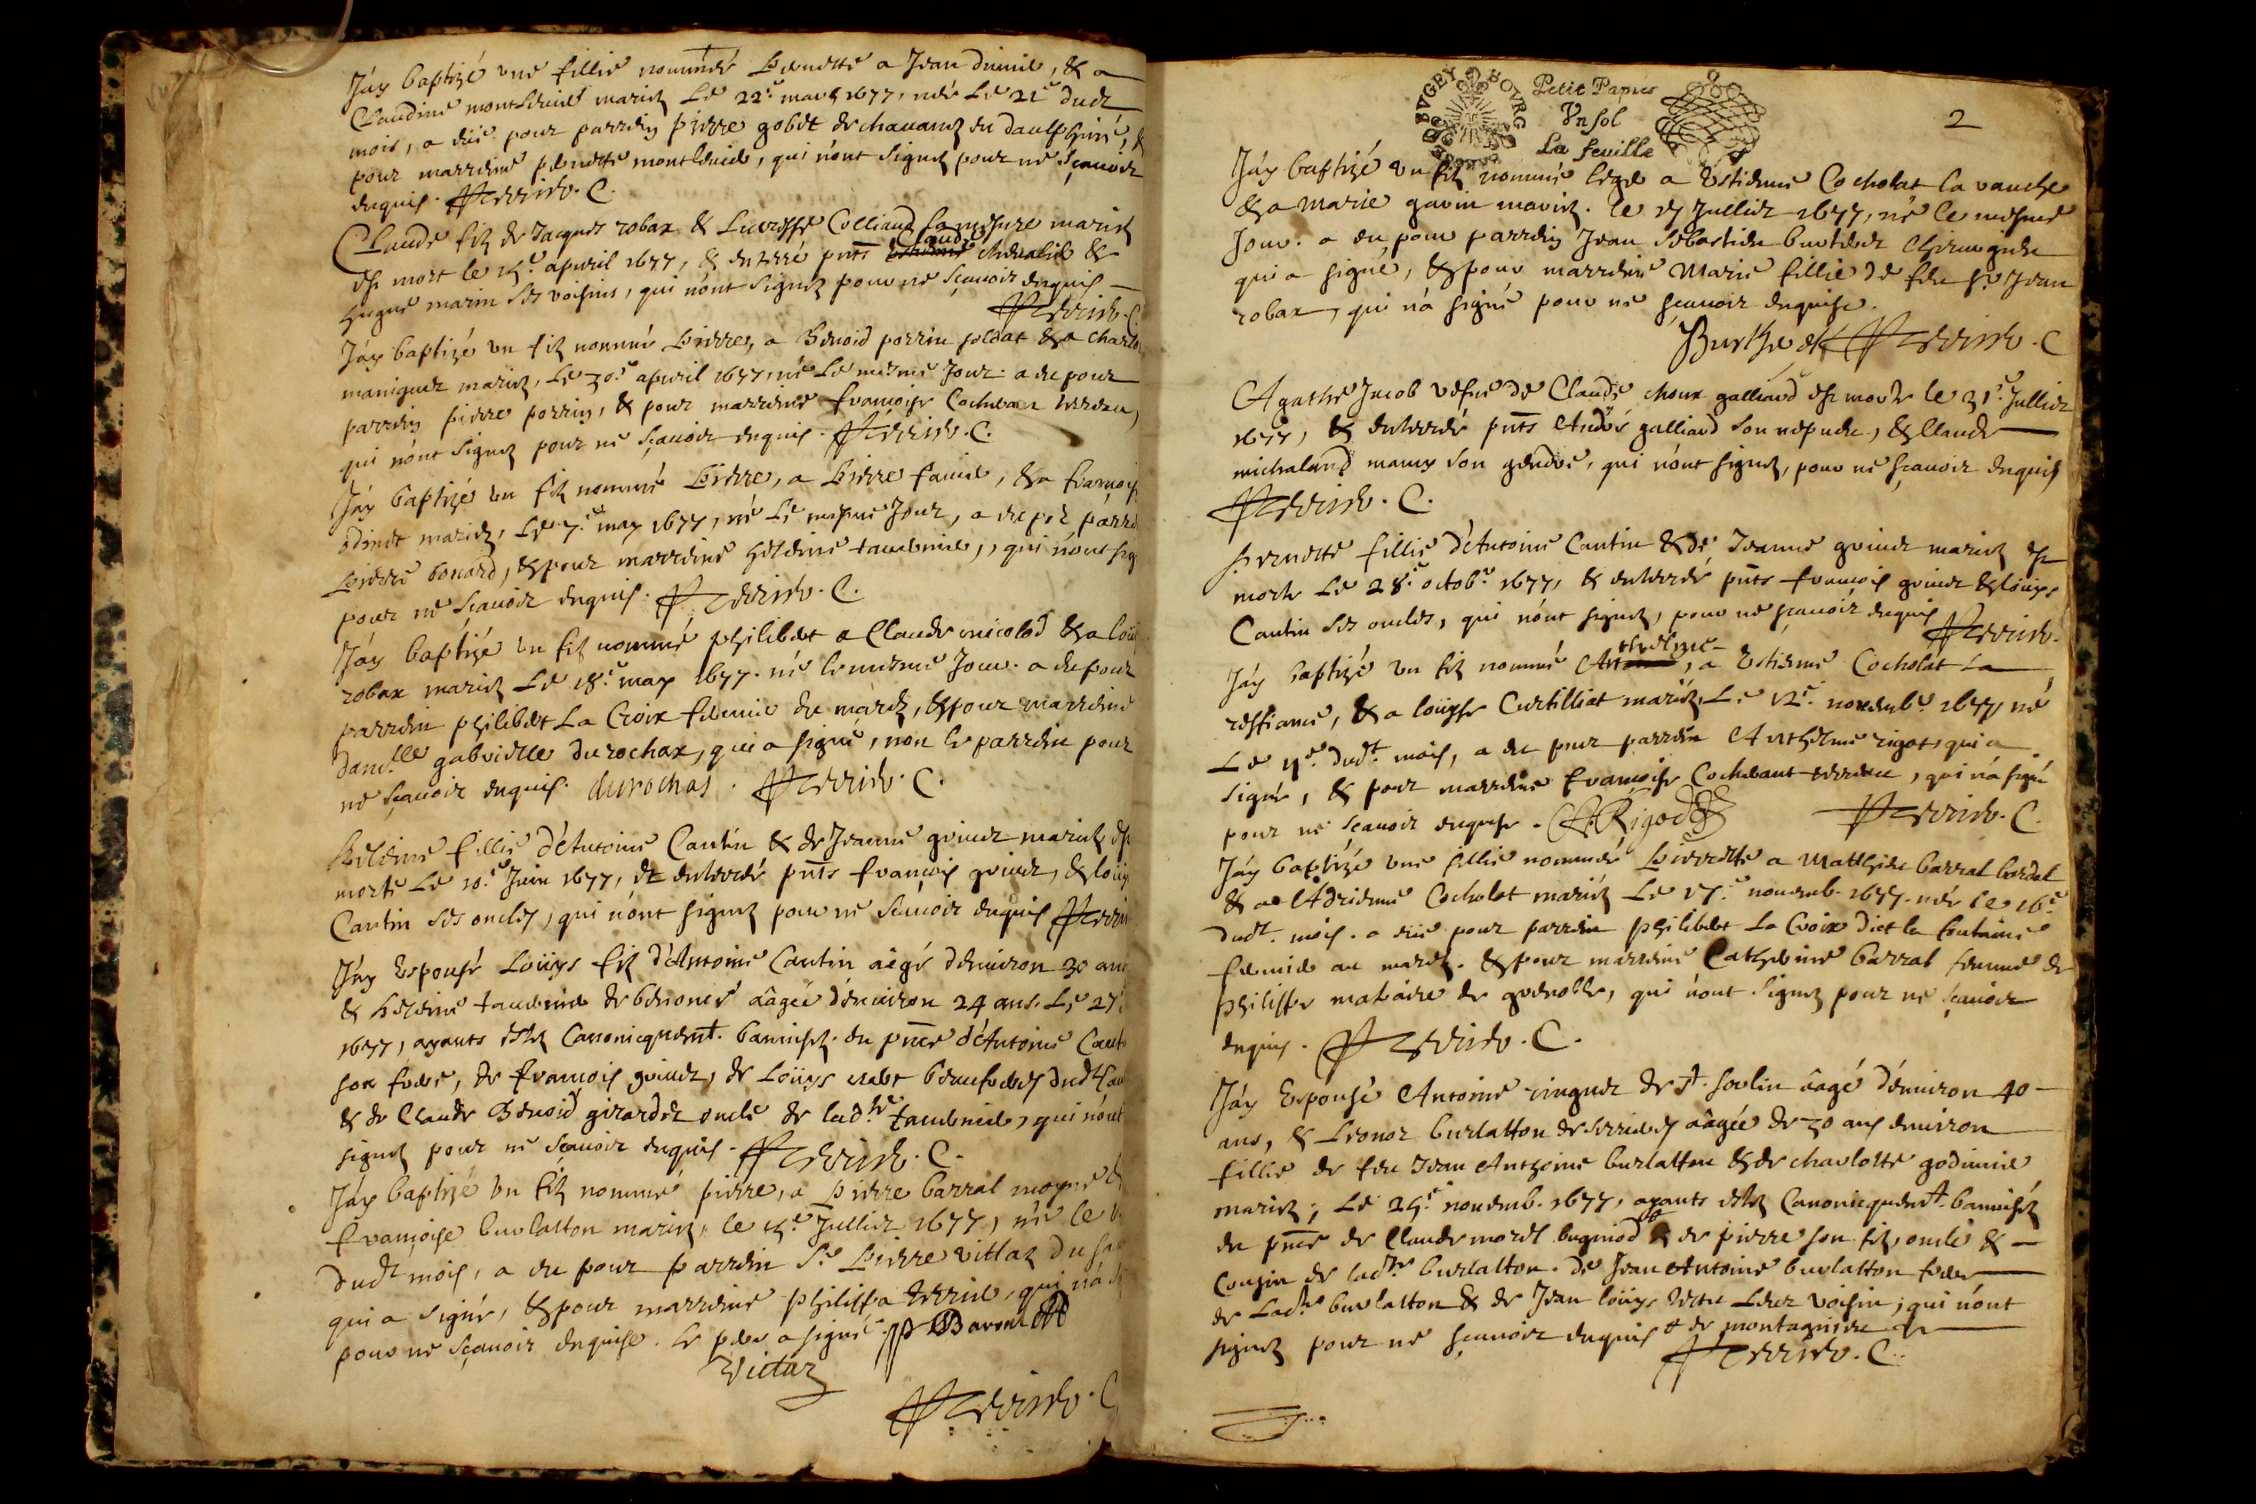 Jáy baptizé une fillie nommée Pernette a Jean dimie, & a
Claudine montbernie mariez Le 22e mars 1677, née Le 21e dudt
mois, a eüe pour parrein pierre gobet de chauanoz en daulphiné, &
pour marreine pernette montbernie, qui nónt signez pour ne sçauoir
enquis. C.
Claude filz de Jacques robax & Lucresse Colliaux la masure mariez
est mort le 15e apuril 1677, & enterré pnts cheualie &
hugue marin ses voisins, qui nónt signez pour ne sçauoir enquis
C.
Jáy baptizé un filz nommé Pierre, a Benoid porrin soldat & a charlo
maniguet mariez, Le 30e apuril 1677, né Le mesme Jour. a eu pour
parrein pierre porrin, & pour marreine francoise Cocheaux terreau,
qui nónt signez pour ne sçauoir enquis. C.
Jáy baptizé un filz nommé Pierre, a Pierre fauie, & a francoise
odinet mariez, Le 7e may 1677, né Le mesme Jour, a eu por parre
Pierre bonard, & pour marreine heleine tauernie, qui nónt sig
pour ne sçauoir enquis. C.
Jáy baptizé un filz nommé philibert a Claude nicolod & a loüi
robax mariez Le 18e may 1677. né le mesme Jour. a eu pour
parrein philibert La Croix fermie du marez, & pour marreine
damlle gabrielle durochax, qui a signé, non le parrein pour
ne sçauoir enquis. durochas. C.
Heleine fillie d'Antoine Cantin & de Jeanne grinet mariez est
morte Le 10e Juin 1677, et enterrée pnts francois grinet, & loüys
Cantin ses oncles, qui nónt signez pour ne sçauoir enquis
Jáy Espousé Loüys filz d'Antoine Cantin aâgé d'enuiron 30 ans
& heleine tauernie de brionet aâgée d'enuiron 24 ans. Le 27e
1677, ayants estez Canonicquemt. bannisez. en pnce d'Antoine Cant
son frere, de francois grinet, de Loüys beaufreres dudt Can
& de Claude Benoid girardet oncle de ladte tauernie, qui nónt
signez pour ne sçauoir enquis. C.
Jáy baptizé un filz nommé pierre, a pierre barral moyne &
francoise burlatton mariez, le 15e Jullier 1677, né le
dudt mois, a eu pour parrein Sr Pierre Vittaz du
qui a signé, & pour marreine philippa terrie, qui ná
pour ne sçauoir enquise. le pere a signé.
Vittaz
C
BVGEY BOVRG
Petit Papier
Vn sol
La feuille
2
Jáy baptizé un filz nommé a Estienne Cocholat la vauche
& a Marie gauin mariez. le 17 Jullier 1677, né le mesme
Jour. a eu pour parrein Jean Sebastien burtier Chirurgien
qui a signé, & pour marreine Marie fillie de feu Sr Jean
robax, qui ná signé pour ne sçauoir enquise.
C
Agathe Jacob vefue de Claude choux galliard est morte le 31e Jullier
1677, & enterrée pnts André galliard son nepueu, & Claude
michaland manux son gendre, qui nónt signez, pour ne sçauoir enquis
C.
Pernette fillie d'Antoine Cantin & de Jeanne grinet mariez est
morte Le 28e octobe 1677, & enterrée pnts francois grinet & loüys
Cantin ses oncles, qui nónt signez, pour ne sçauoir enquis
Jáy baptizé un filz nommé Anthelme, a Estienne Cocholat La
ressiance, & a loüyse Curtilliat mariez, Le 12e nouembe 1677, né
Le 11e dudt. mois, a eu pour parrein Anthelme rigot, qui a
signé, & pour marreine francoise Cocheaux terreau, qui ná signé
pour ne sçauoir enquise. Rigod C.
Jáy baptizé une fillie nommée Pierrette a Matthieu barral bordel
& a Adrienne Cocholat mariez Le 17e nouemb. 1677. née le 16e
dudt. mois. a eüe pour parrein Philibert La Croix dict la fontaine
fermie au marez. & pour marreine Catherine barral femme de
philippe matraire de grenoble, qui nónt signez pour ne sçauoir
enquis. C.
Jáy Espousé Antoine ringuet de St. sorlin aâgé d'enuiron 40
ans, & Leonor burlatton de serrieres aâgée de 30 ans enuiron
fillie de feu Jean Anthoine burlatton & de charlotte godinnie
mariez; Le 25e nouemb. 1677, ayants estez Canonicquemt. bannisez
en pnce de Claude morel bugniod & de pierre son filz, oncle &
Cousin de ladte burlatton. de Jean Antoine burlatton frere
de Ladte burlatton & de Jean loüys Leur voisin, qui nónt
signez pour ne sçauoir enquis de montagnieu
C.